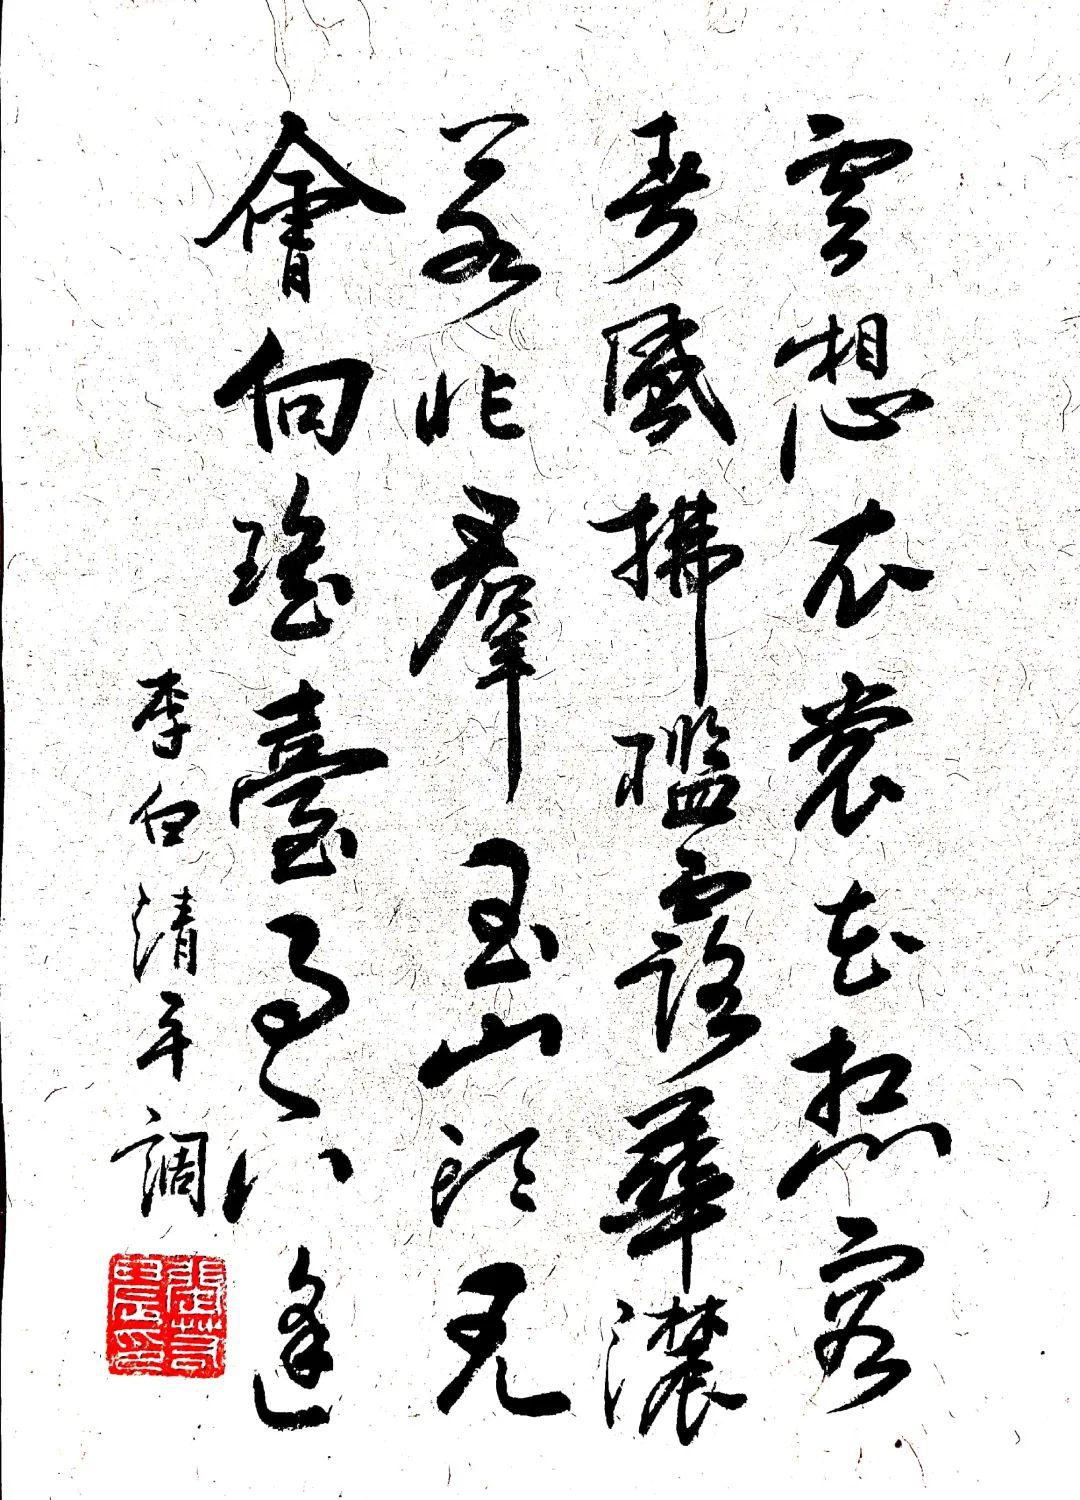 雲想衣裳花想容
春風拂檻露華濃
若非羣玉山頭見
會向瑤臺月下逢
李白清平調